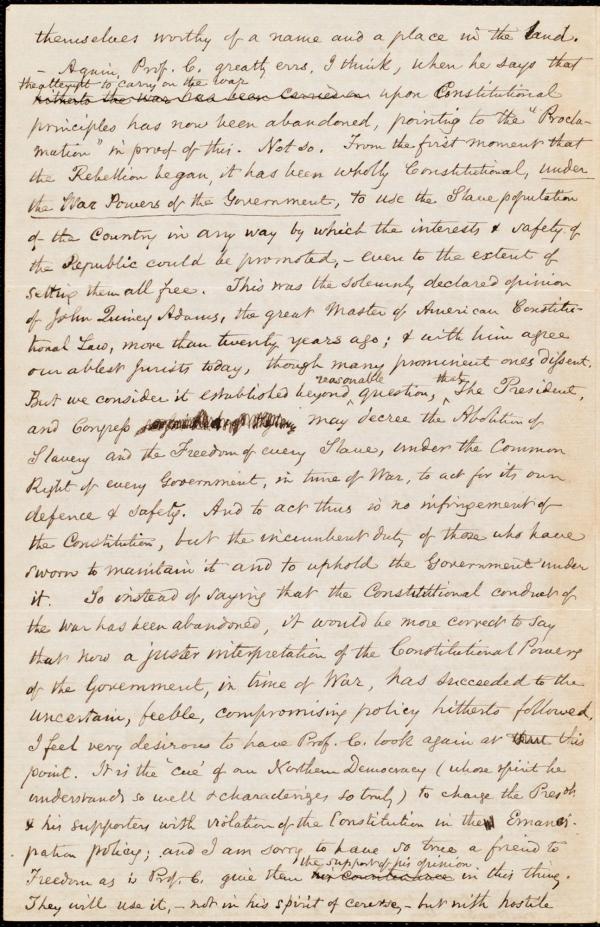 themselves worthy of a name and a place in the land.
- Again, Prof. C. greatly errs, I think, when he says that
the attempt to carry on the war
hitherto the war has been carried on upon Constitutional
principles has now been abandoned, pointing to the "Procla-
mation" in proof of this. Not so. From the first moment that
the Rebellion began, it has been wholly Constitutional, under
the War Powers of the Government, to use the Slave population
of the Country in any way by which the interests & safety of
the Republic could be promoted, - even to the extent of
setting them all free. This was the solemnly declared opinion
of John Quincy Adams, the great Master of American Constitu-
tional Law, more than twenty years ago; & with him agree
our ablest Jurists today, though many prominent ones dissent.
reasonable that
But we consider it established beyond question, The President,
and Congress may decree the Abolition of
Slavery and the Freedom of every Slave, under the Common
Right of every Government, in time of War, to act for its own
defence & safety. And to act thus is no infringement of
the Constitution, but the incumbent duty of those who have
sworn to maintain it and to uphold the Government under
it. So instead of saying that the Constitutional conduct of
the war has been abandoned, it would be more correct to say
that now a juster interpretation of the Constitutional Powers
of the Government, in time of War, has succeeded to the
uncertain, feeble, compromising policy hitherto followed.
I feel very desirous to have Prof. C. look again at this
point. It is the 'cue' of our Northern Democracy (whose spirit he
understands so well & characterizes so truly) to charge the Presdt.
& his supporters with violation of the Constitution in their Emanci-
pation policy; and I am sorry to have so true a friend to
the support of his opinion
Freedom as is Prof. C. give them his countenance in this thing.
They will use it, - not in his spirit of censure, - but with hostile